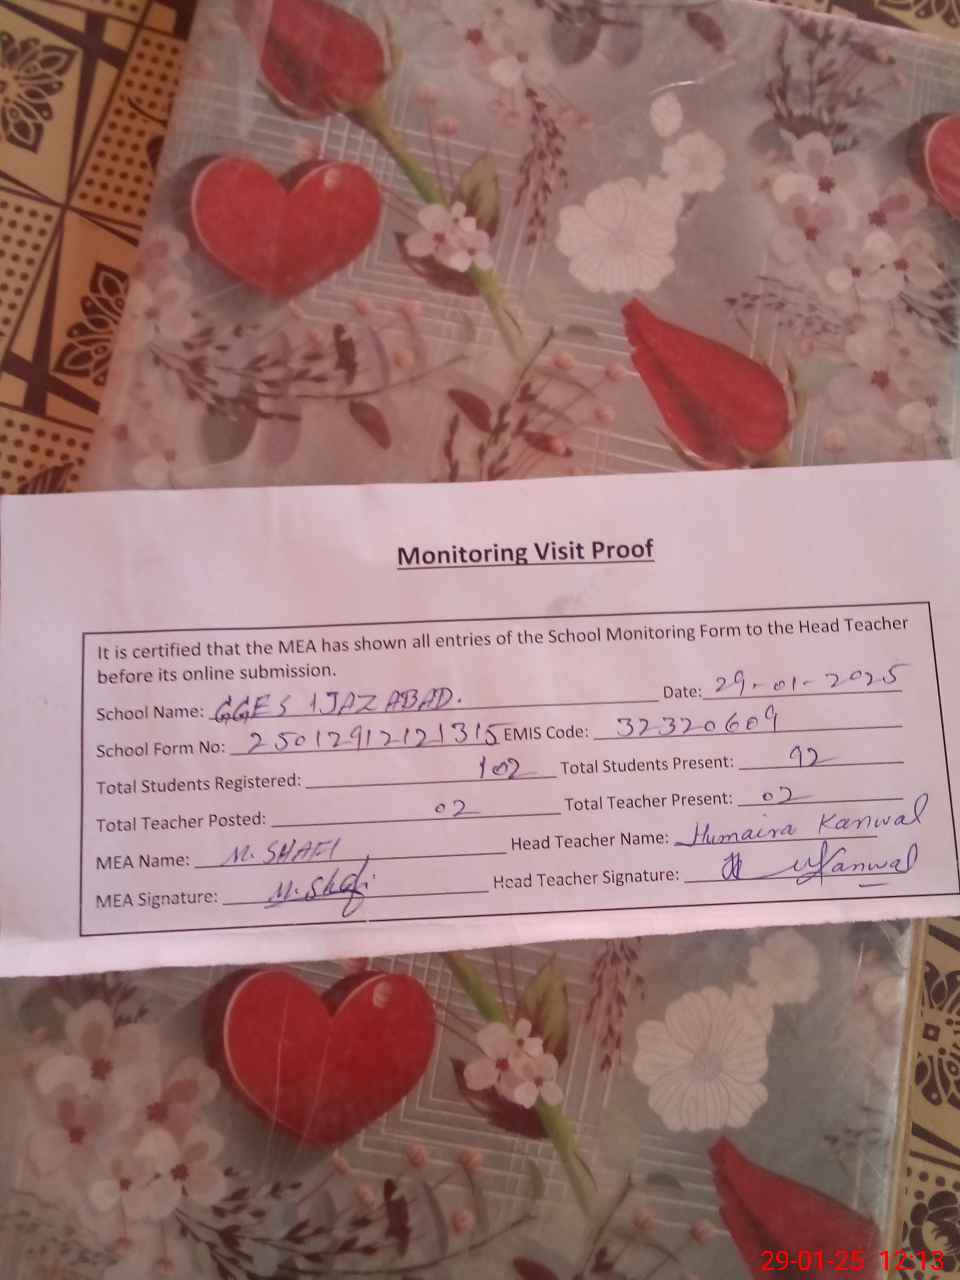 Monitoring Visit Proof
It is certified that the MEA has shown all entries of the School Monitoring Form to the Head Teacher
before its online submission.
School Name: GGES IJAZ ABAD. Date: 29-01-2025
School Form No: 25012912121315 EMIS Code: 32320609
Total Students Registered: 102 Total Students Present: 92
Total Teacher Posted: 02 Total Teacher Present: 02
MEA Name: M. SHAFI Head Teacher Name: Humaira Kanwal
MEA Signature: M. Shafi Head Teacher Signature: Kanwal
29-01-25 12:13